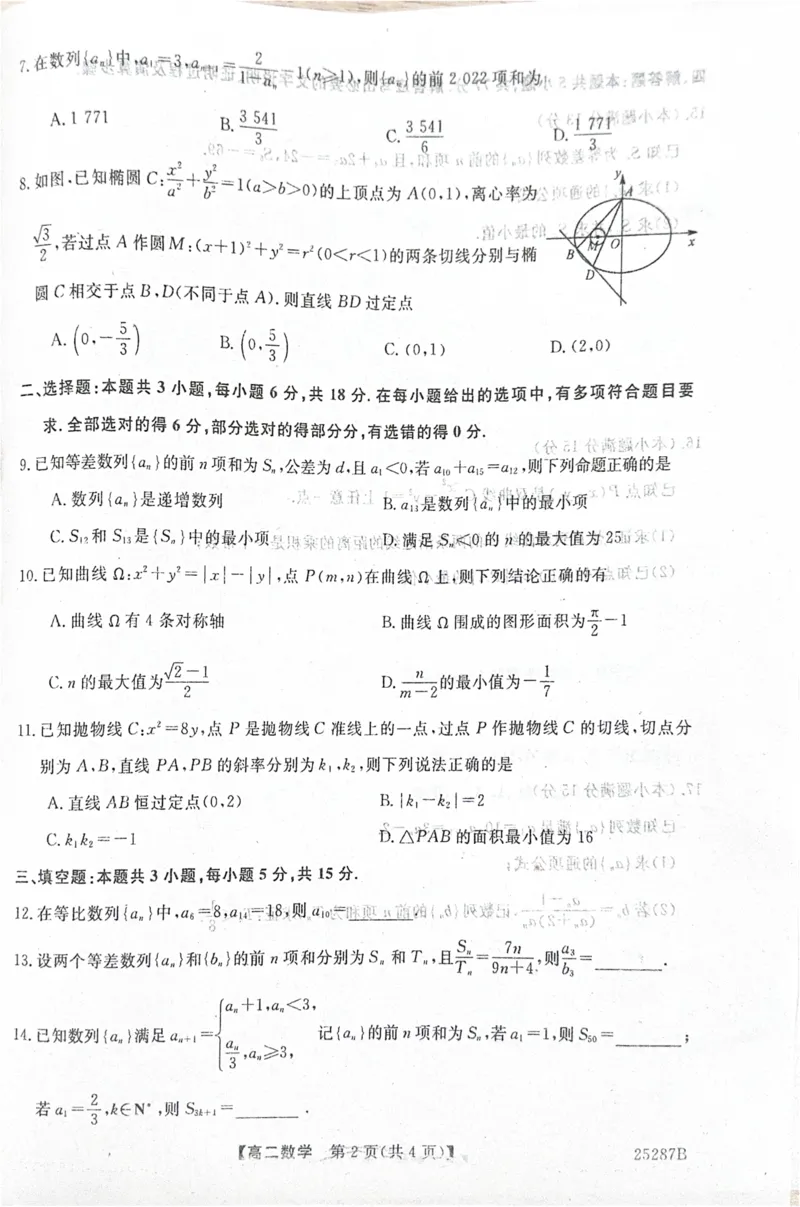 7.在数列{aₙ}中,a₁=3,aₙ₊₁=2/(1-aₙ)-1(n≥1),则{aₙ}的前2 022项和为
A.1 771 B.3 541/3 C.3 541/6 D.1 771/3
8.如图,已知椭圆C:x²/a²+y²/b²=1(a>b>0)的上顶点为A(0,1),离心率为
y
A
B
M
O
x
D
√3/2,若过点A作圆M:(x+1)²+y²=r²(0<r<1)的两条切线分别与椭
圆C相交于点B,D(不同于点A).则直线BD过定点
A.(0,-5/3) B.(0,5/3) C.(0,1) D.(2,0)
二、选择题:本题共3小题,每小题6分,共18分.在每小题给出的选项中,有多项符合题目要
求.全部选对的得6分,部分选对的得部分分,有选错的得0分.
9.已知等差数列{aₙ}的前n项和为Sₙ,公差为d,且a₁<0,若a₁₀+a₁₅=a₁₂,则下列命题正确的是
A.数列{aₙ}是递增数列 B.a₁₃是数列{aₙ}中的最小项
C.S₁₂和S₁₃是{Sₙ}中的最小项 D.满足Sₙ≤0的n的最大值为25
10.已知曲线Ω:x²+y²=|x|-|y|,点P(m,n)在曲线Ω上,则下列结论正确的有
A.曲线Ω有4条对称轴 B.曲线Ω围成的图形面积为π/2-1
C.n的最大值为(√2-1)/2 D.n/(m-2)的最小值为-1/7
11.已知抛物线C:x²=8y,点P是抛物线C准线上的一点,过点P作抛物线C的切线,切点分
别为A,B,直线PA,PB的斜率分别为k₁,k₂,则下列说法正确的是
A.直线AB恒过定点(0,2) B.|k₁-k₂|=2
C.k₁k₂=-1 D.△PAB的面积最小值为16
三、填空题:本题共3小题,每小题5分,共15分.
12.在等比数列{aₙ}中,a₆=8,a₁₄=18,则a₁₀=______.
13.设两个等差数列{aₙ}和{bₙ}的前n项和分别为Sₙ和Tₙ,且Sₙ/Tₙ=7n/(9n+4),则a₃/b₃=______.
14.已知数列{aₙ}满足aₙ₊₁={aₙ+1,aₙ<3, aₙ/3,aₙ≥3, 记{aₙ}的前n项和为Sₙ,若a₁=1,则S₅₀=______;
若a₁=2/3,k∈N*,则S₃ₖ₊₁=______.
【高二数学 第2页(共4页)】 25287B